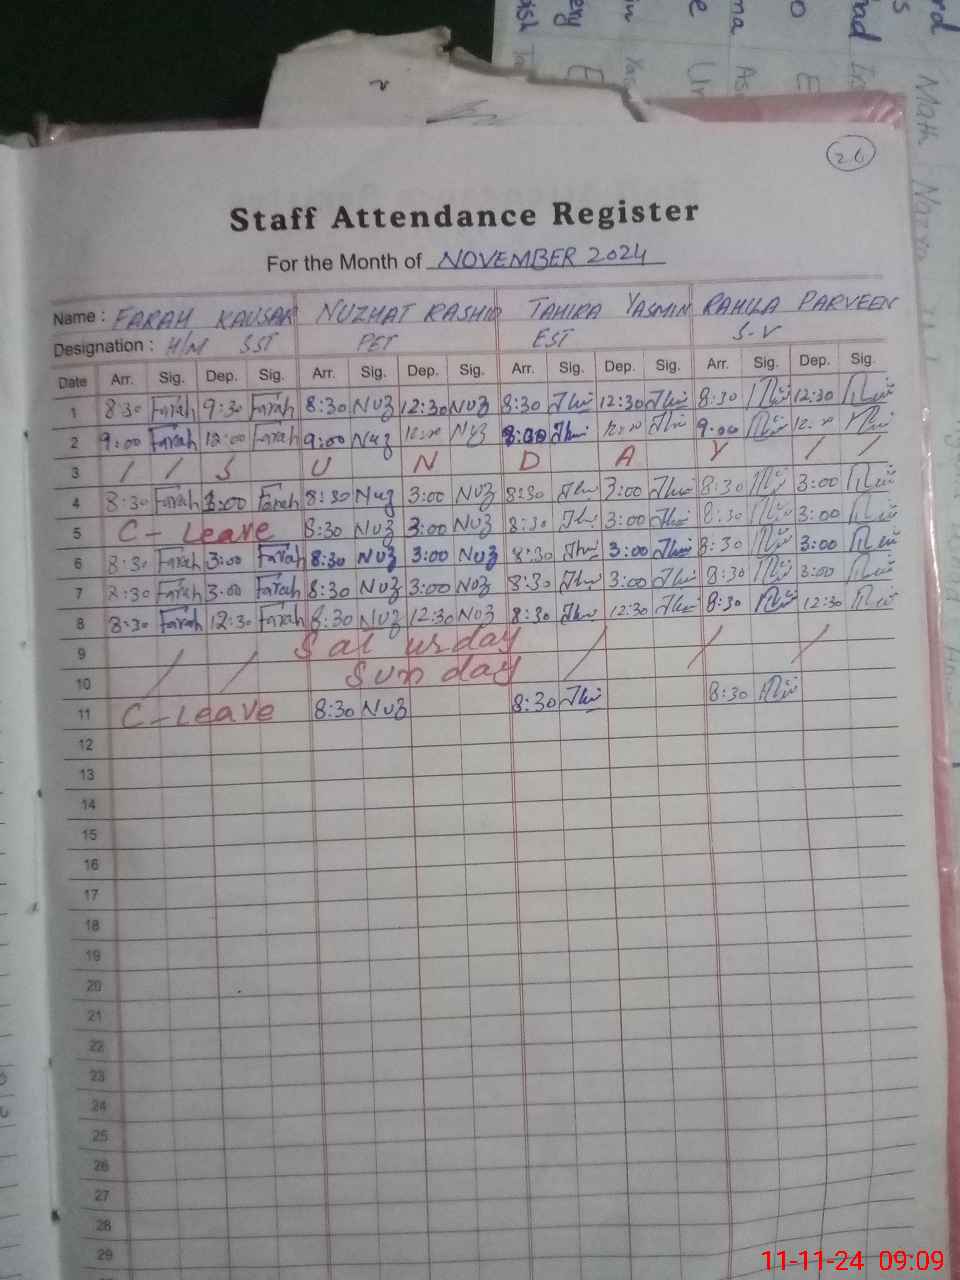 26
Staff Attendance Register
For the Month of NOVEMBER 2024
Name : FARAH KAUSAR NUZHAT RASHID TAHIRA YASMIN RAHILA PARVEEN
Designation : H/M SST PET EST S-V
Date Arr. Sig. Dep. Sig. Arr. Sig. Dep. Sig. Arr. Sig. Dep. Sig. Arr. Sig. Dep. Sig.
1 8:30 Farah 9:30 Farah 8:30 Nuz 12:30 Nuz 8:30 12:30 8:30 12:30
2 9:00 Farah 12:00 Farah 9:00 Nuz 12:00 Nuz 8:00 12:00 9:00 12:00
3 / / S U N D A Y / /
4 8:30 Farah 3:00 Farah 8:30 Nuz 3:00 Nuz 8:30 3:00 8:30 3:00
5 C- Leave 8:30 Nuz 3:00 Nuz 8:30 3:00 8:30 3:00
6 8:30 Farah 3:00 Farah 8:30 Nuz 3:00 Nuz 8:30 3:00 8:30 3:00
7 8:30 Farah 3:00 Farah 8:30 Nuz 3:00 Nuz 8:30 3:00 8:30 3:00
8 8:30 Farah 12:30 Farah 8:30 Nuz 12:30 Nuz 8:30 12:30 8:30 12:30
9 Saturday
10 / / Sunday / / /
11 C-Leave 8:30 Nuz 8:30 8:30
12
13
14
15
16
17
18
19
20
21
22
23
24
25
26
27
28
29
11-11-24 09:09